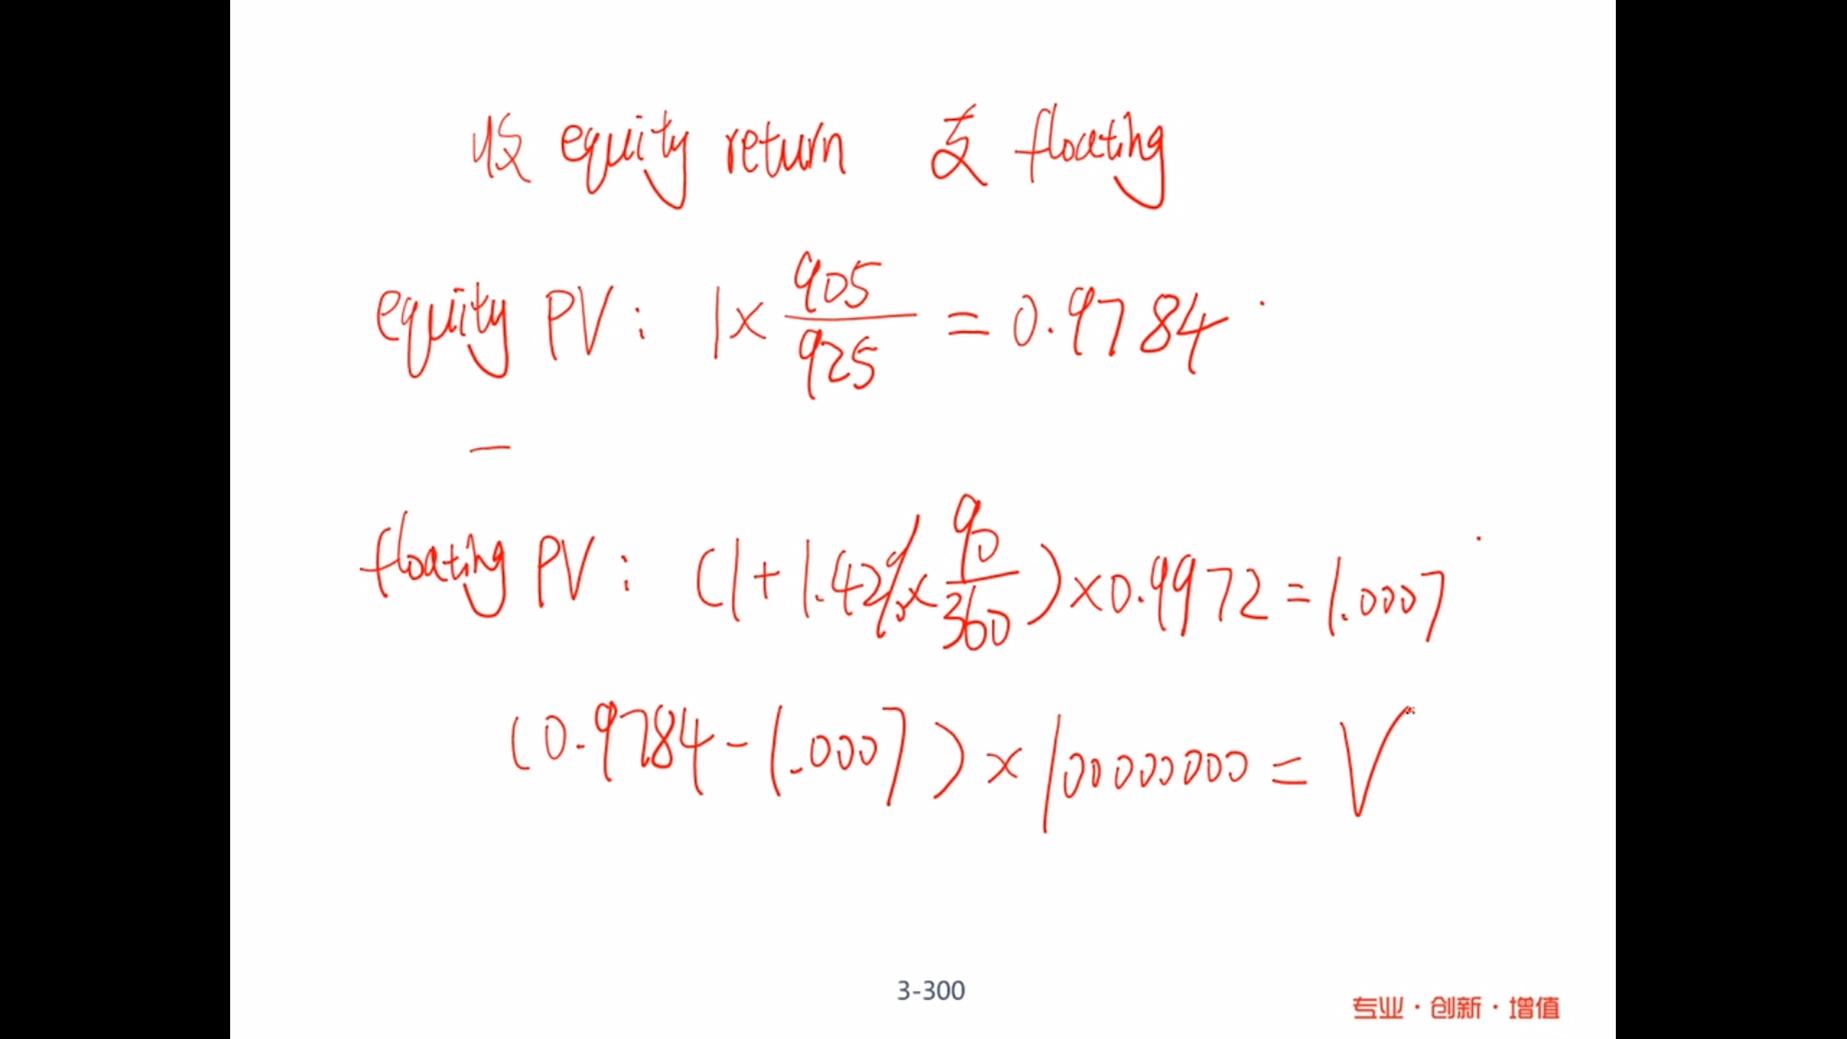 收 equity return 支 floating
equity PV: 1 × 905/925 = 0.9784
—
floating PV: (1 + 1.42% × 90/360) × 0.9972 = 1.0007
(0.9784 - 1.0007) × 100000000 = V
3-300
专业·创新·增值